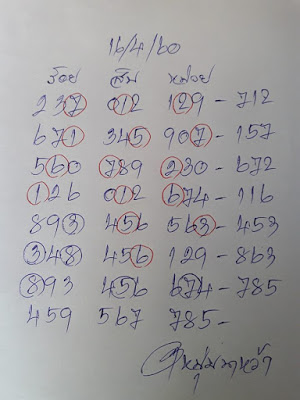 16/4/60
ร้อย สิบ หน่วย
237 012 129 - 712
671 345 907 - 157
560 789 230 - 672
126 012 674 - 116
893 456 563 - 453
348 456 129 - 863
893 456 674 - 785
459 567 785 -